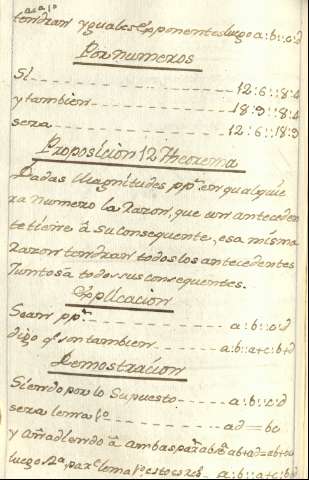 tendran yguales Exponentes luego a:b::c:d
Por numeros
Si 12:6::8:4
y tambien 18:9::8:4
sera 12:6::18:9
Proposicion 12 Theorema
Dadas Magnitudes pp.s en qualquie
ra numero la Razon, que un anteceden
te tiene â su consequente, esa misma
Razon tendran todos los antecedentes
Juntos â todos sus consequentes.
Explicacion
Sean pp.s a:b::c:d
digo q.e son tambien a:b::a+c:b+d
Demostracion
Siendo por lo Supuesto a:b::c:d
sera lema 1º ad=bc
y Añadiendo â ambas par ab ab+ad=ab+bc
luego par lema 1º esto es a:b::a+c:b+d